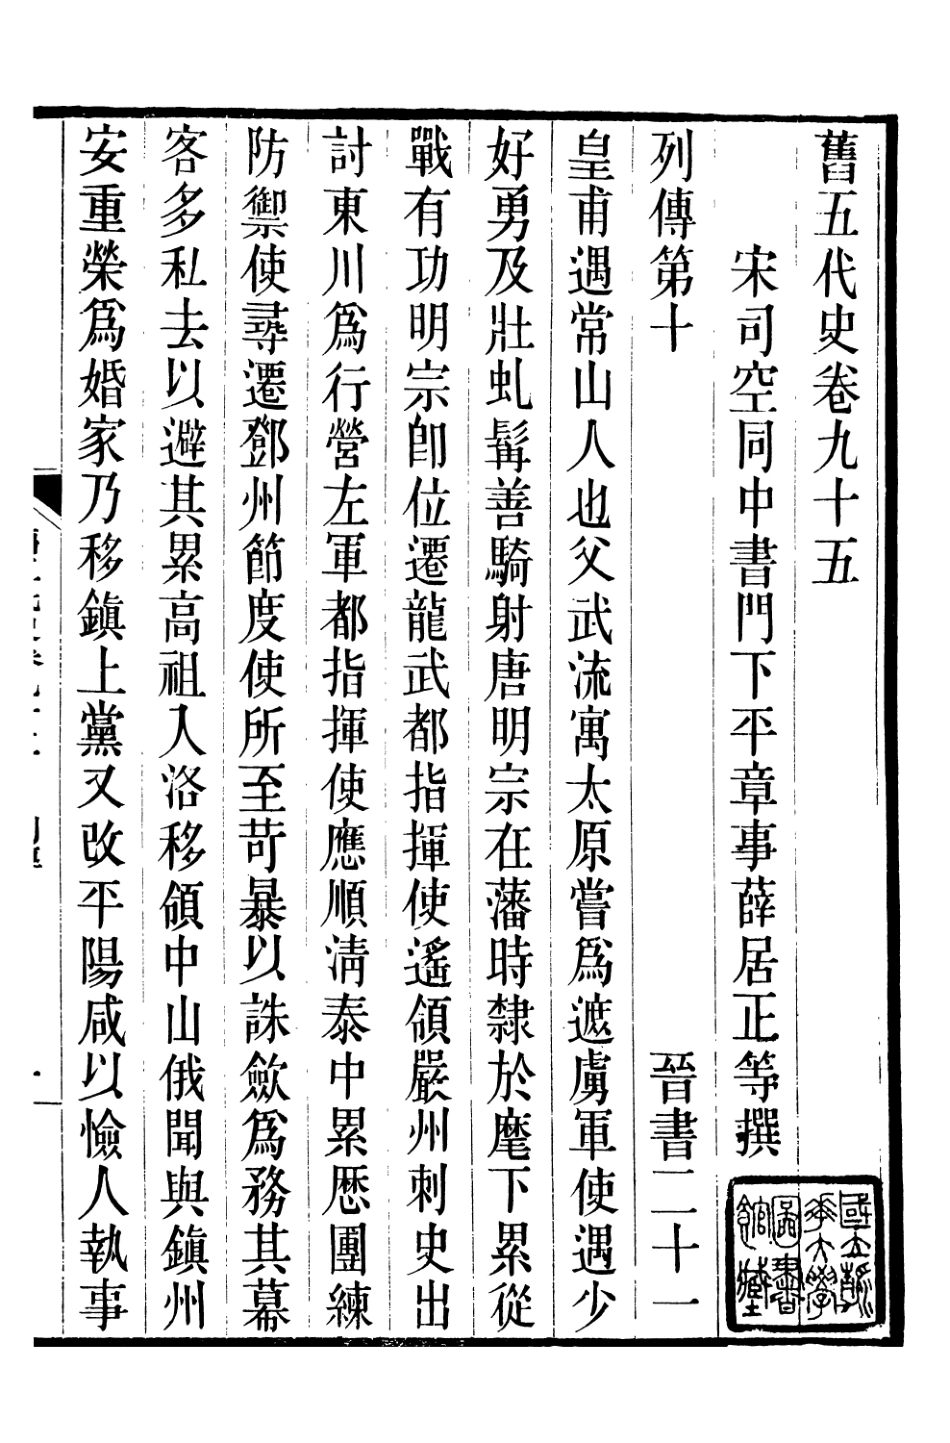 舊五代史卷九十五
宋司空同中書門下平章事薛居正等撰
列傳第十 晉書二十一
皇甫遇常山人也父武流寓太原嘗爲遮虜軍使遇少
好勇及壯虬髯善騎射唐明宗在藩時隸於麾下累從
戰有功明宗卽位遷龍武都指揮使遙領嚴州刺史出
討東川爲行營左軍都指揮使應順淸泰中累歴團練
防禦使尋遷鄧州節度使所至苛暴以誅斂爲務其幕
客多私去以避其累高祖入洛移領中山俄聞與鎭州
安重榮爲婚家乃移鎭上黨又改平陽咸以憸人執事
國立清華大學圖書館藏